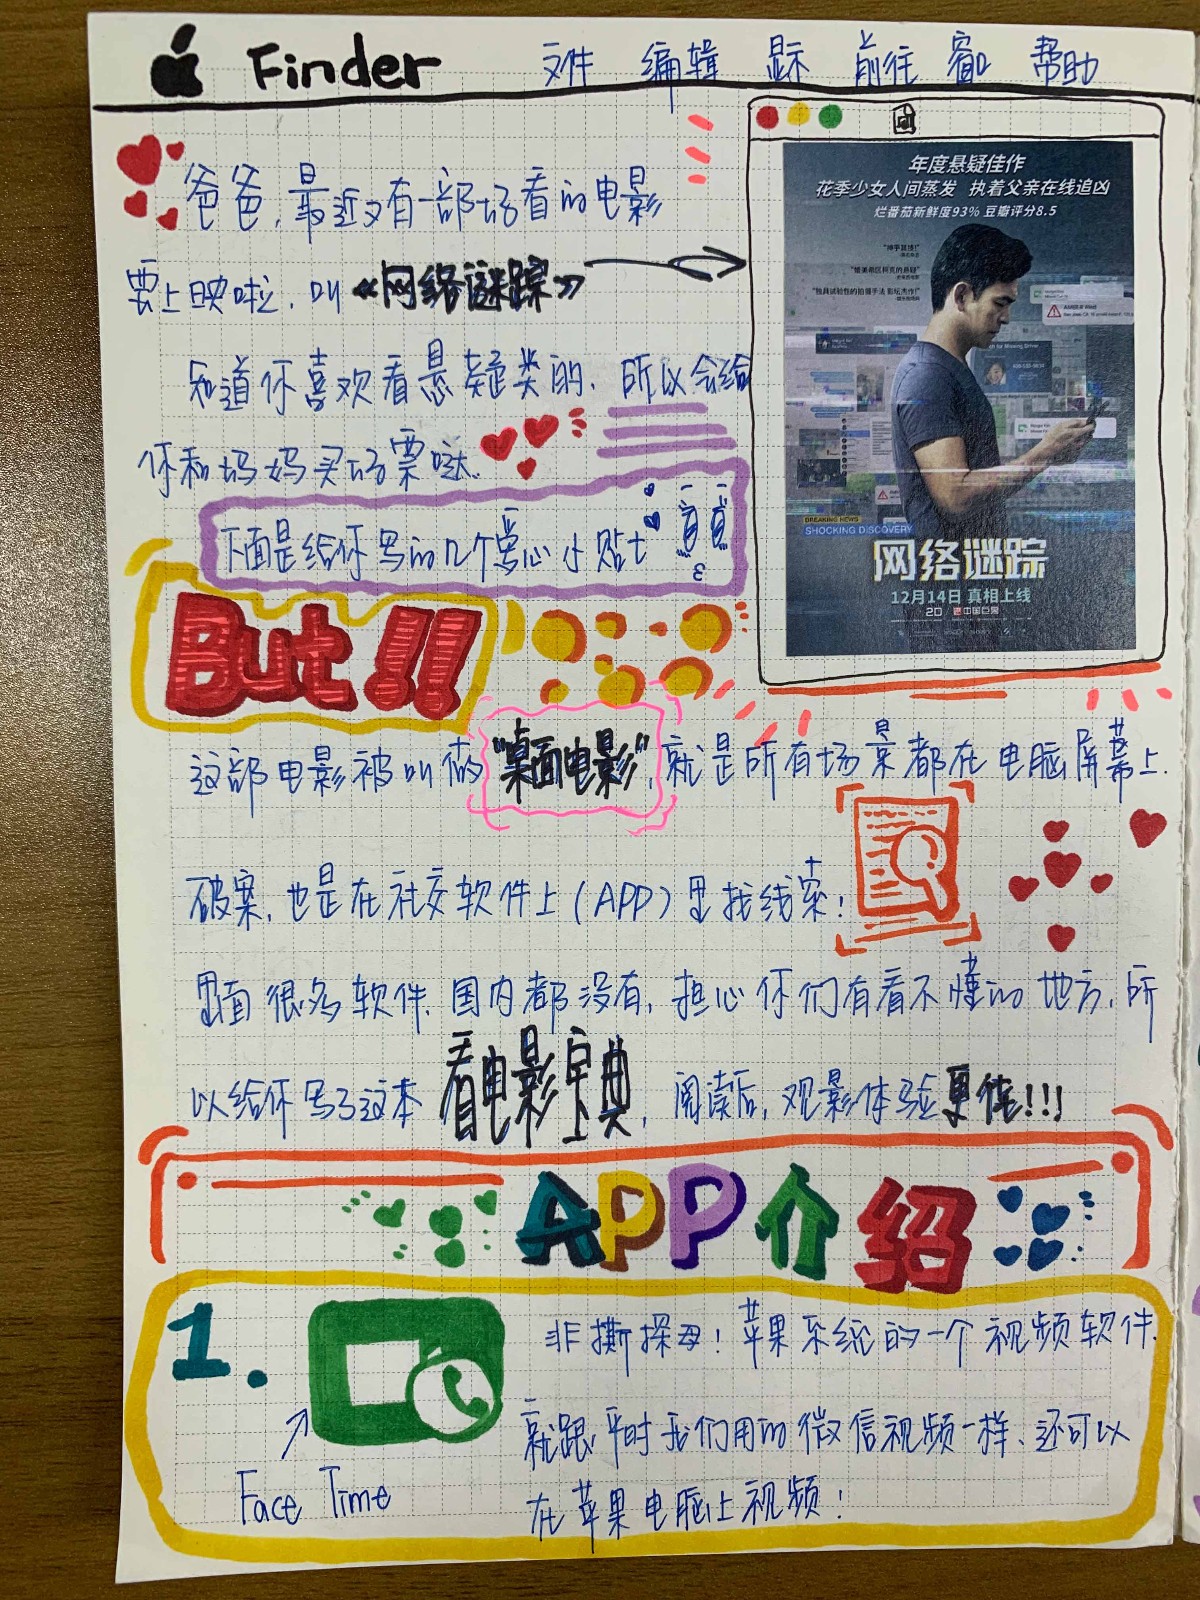 Finder 文件 编辑 显示 前往 窗口 帮助
爸爸,最近又有一部好看的电影
要上映啦,叫《网络谜踪》
知道你喜欢看悬疑类的,所以会给
你和妈妈买好票哒.
下面是给你写的几个爱心小贴士
But!!
年度悬疑佳作
花季少女人间蒸发 执着父亲在线追凶
烂番茄新鲜度93% 豆瓣评分8.5
BREAKING NEWS
SHOCKING DISCOVERY
网络谜踪
12月14日 真相上线
2D 中国巨幕
这部电影被叫做“桌面电影”,就是所有场景都在电脑屏幕上.
破案,也是在社交软件上(APP)里找线索!
里面很多软件,国内都没有,担心你们有看不懂的地方,所
以给你写了这本看电影宝典,阅读后,观影体验更佳!!!
APP介绍
1.
Face Time
非撕探母!苹果系统的一个视频软件.
就跟平时我们用的微信视频一样、还可以
在苹果电脑上视频!